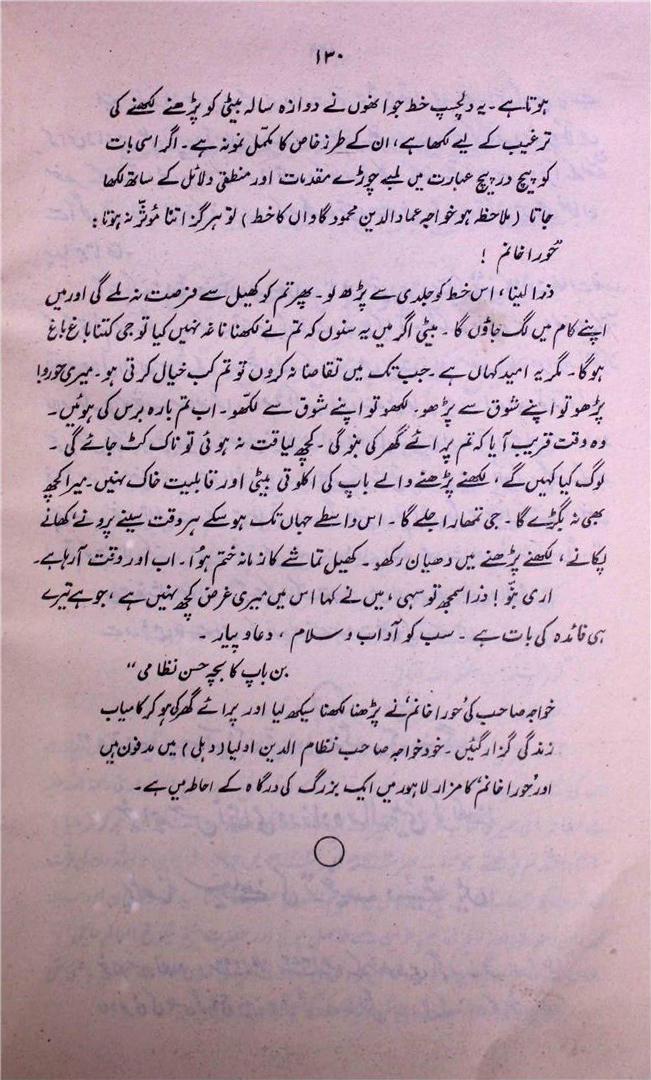 ۱۳۰
ہوتا ہے۔ یہ دلچسپ خط جو انھوں نے دوازدہ سالہ بیٹی کو پڑھنے لکھنے کی
ترغیب کے لیے لکھا ہے، ان کے طرز خاص کا مکمل نمونہ ہے۔ اگر اسی بات
کو پیچ در پیچ عبارت میں لمبے چوڑے مقدمات اور منطقی دلائل کے ساتھ لکھا
جاتا (ملاحظہ ہو خواجہ عماد الدین محمود گاواں کا خط) تو ہرگز اتنا مؤثر نہ ہوتا:
"حورا خانم !
ذرا لینا، اس خط کو جلدی سے پڑھ لو۔ پھر تم کو کھیل سے فرصت نہ ملے گی اور میں
اپنے کام میں لگ جاؤں گا۔ بیٹی اگر میں یہ سنوں کہ تم نے لکھنا ناغہ نہیں کیا تو جی کتنا باغ باغ
ہوگا۔ مگر یہ امید کہاں ہے۔ جب تک میں تقاضا نہ کروں تو تم کب خیال کرتی ہو۔ میری حوربا!
پڑھو تو اپنے شوق سے پڑھو۔ لکھو تو اپنے شوق سے لکھو۔ اب تم بارہ برس کی ہوئیں۔
وہ وقت قریب آیا کہ تم پرائے گھر کی بنو گی۔ کچھ لیاقت نہ ہوئی تو ناک کٹ جائے گی۔
لوگ کیا کہیں گے، لکھنے پڑھنے والے باپ کی اکلوتی بیٹی اور قابلیت خاک نہیں۔ میرا کچھ
بھی نہ بگڑے گا۔ جی تمھارا جلے گا۔ اس واسطے جہاں تک ہو سکے ہر وقت سینے پرونے، کھانے
پکانے، لکھنے پڑھنے میں دھیان رکھو۔ کھیل تماشے کا زمانہ ختم ہوا۔ اب اور وقت آرہا ہے۔
اری بنّو! ذرا سمجھ تو سہی، میں نے کہا اس میں میری غرض کچھ نہیں ہے، جو ہے تیرے
ہی فائدہ کی بات ہے۔ سب کو آداب و سلام، دعا و پیار۔
بن باپ کا بچہ حسن نظامی"
خواجہ صاحب کی 'حورا خانم' نے پڑھنا لکھنا سیکھ لیا اور پرائے گھر کی ہو کر کامیاب
زندگی گزار گئیں۔ خود خواجہ صاحب نظام الدین اولیا (دہلی) میں مدفون ہیں
اور 'حورا خانم' کا مزار لاہور میں ایک بزرگ کی درگاہ کے احاطہ میں ہے۔